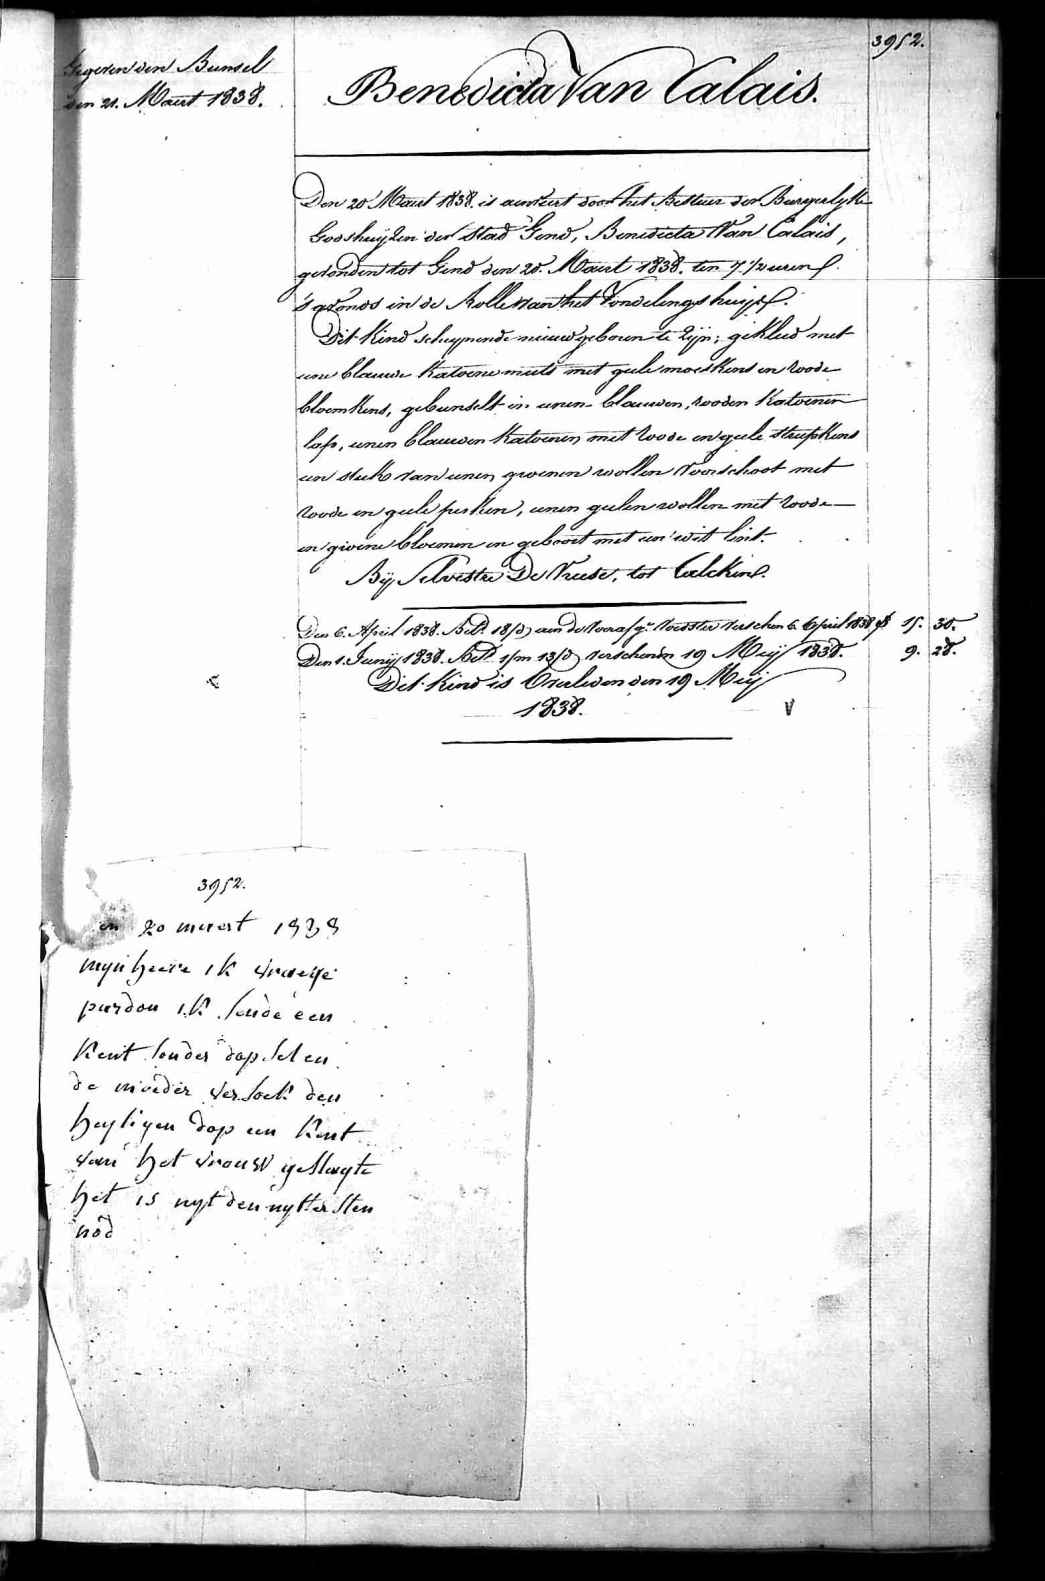 3952.
Gegeven den Bunsel
den 21. Maert 1838.
Benedicta Van Calais.
Den 20 Maert 1838. is aenveirt door het Bestuer der Burgerlyke
Godshuyzen der Stad Gend, Benedicta Van Calais,
gevonden tot Gend den 20. Maert 1838. ten 7. 1/2 uren
's avonds in de Rolle van het Vondelingshuys.
Dit Kind scheynende nieuwgeboren te zyn; gekleed met
eene blauwe Katoene muts met geele moeskens en roode
bloemkens, gebunselt in eenen blauwen, rooden Katoenen
lap, eenen blauwen Katoenen met roode en geele streepkens
een stuk van eenen groenen wollen Voorschoot met
roode en geele perken, eenen geelen wollen met roode
en groene bloemen en geboort met een wit lint.
Bij Silvester De Vreese, tot Calcken.
Den 6. April 1838. Bet. 18/d aen de Voorafg. Voedster verschen 6 April 1838 15. 30.
Den 1. Junij 1838. Bet. 1/m 13/d verschenen 19 Meij 1838. 9. 28.
Dit Kind is Overleden den 19 Meij
1838.
V
3952.
en 20 meert 1838
mynheere ik vraege
pardon ik sende een
kent sonder dopsel en
de moeder versoek den
heyligen dop een kent
van het vrouw geslagte
het is uyt den uyttersten
nod